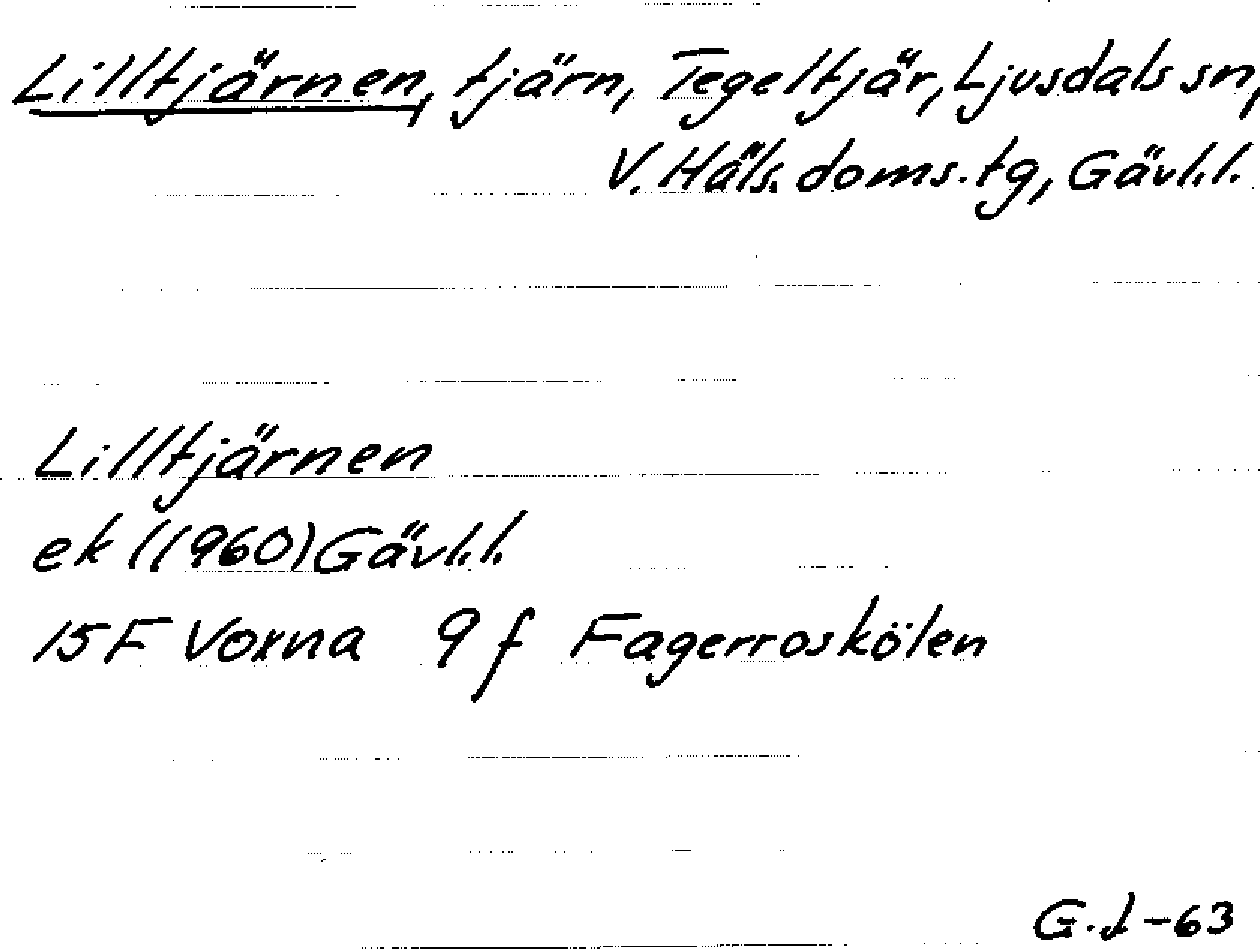 Lilltjärnen, tjärn, Tegeltjär, Ljusdals sn,
V. Häls. doms.tg, Gävl.l.
Lilltjärnen
ek (1960) Gävl.l.
15F Voxna 9f Fagerroskölen
G.J-63